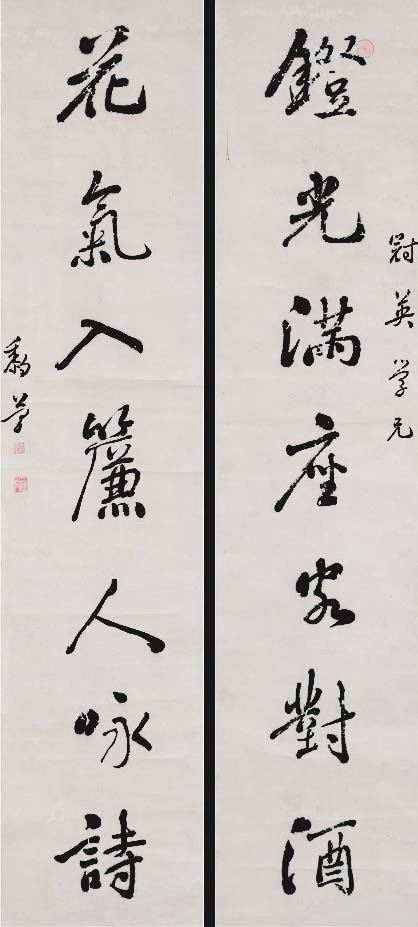 冠英学兄
鐙光满座客對酒
花氣入簾人咏詩
黎简